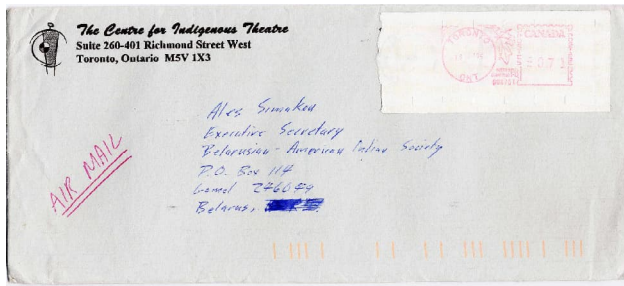 The Centre for Indigenous Theatre
Suite 260-401 Richmond Street West
Toronto, Ontario M5V 1X3
TORONTO
ONT
CANADA
0.71
Ales Simakou
Executive Secretary
Belarusian-American Indian Society
P.O. Box 114
Gomel 246049
Belarus,
AIR MAIL